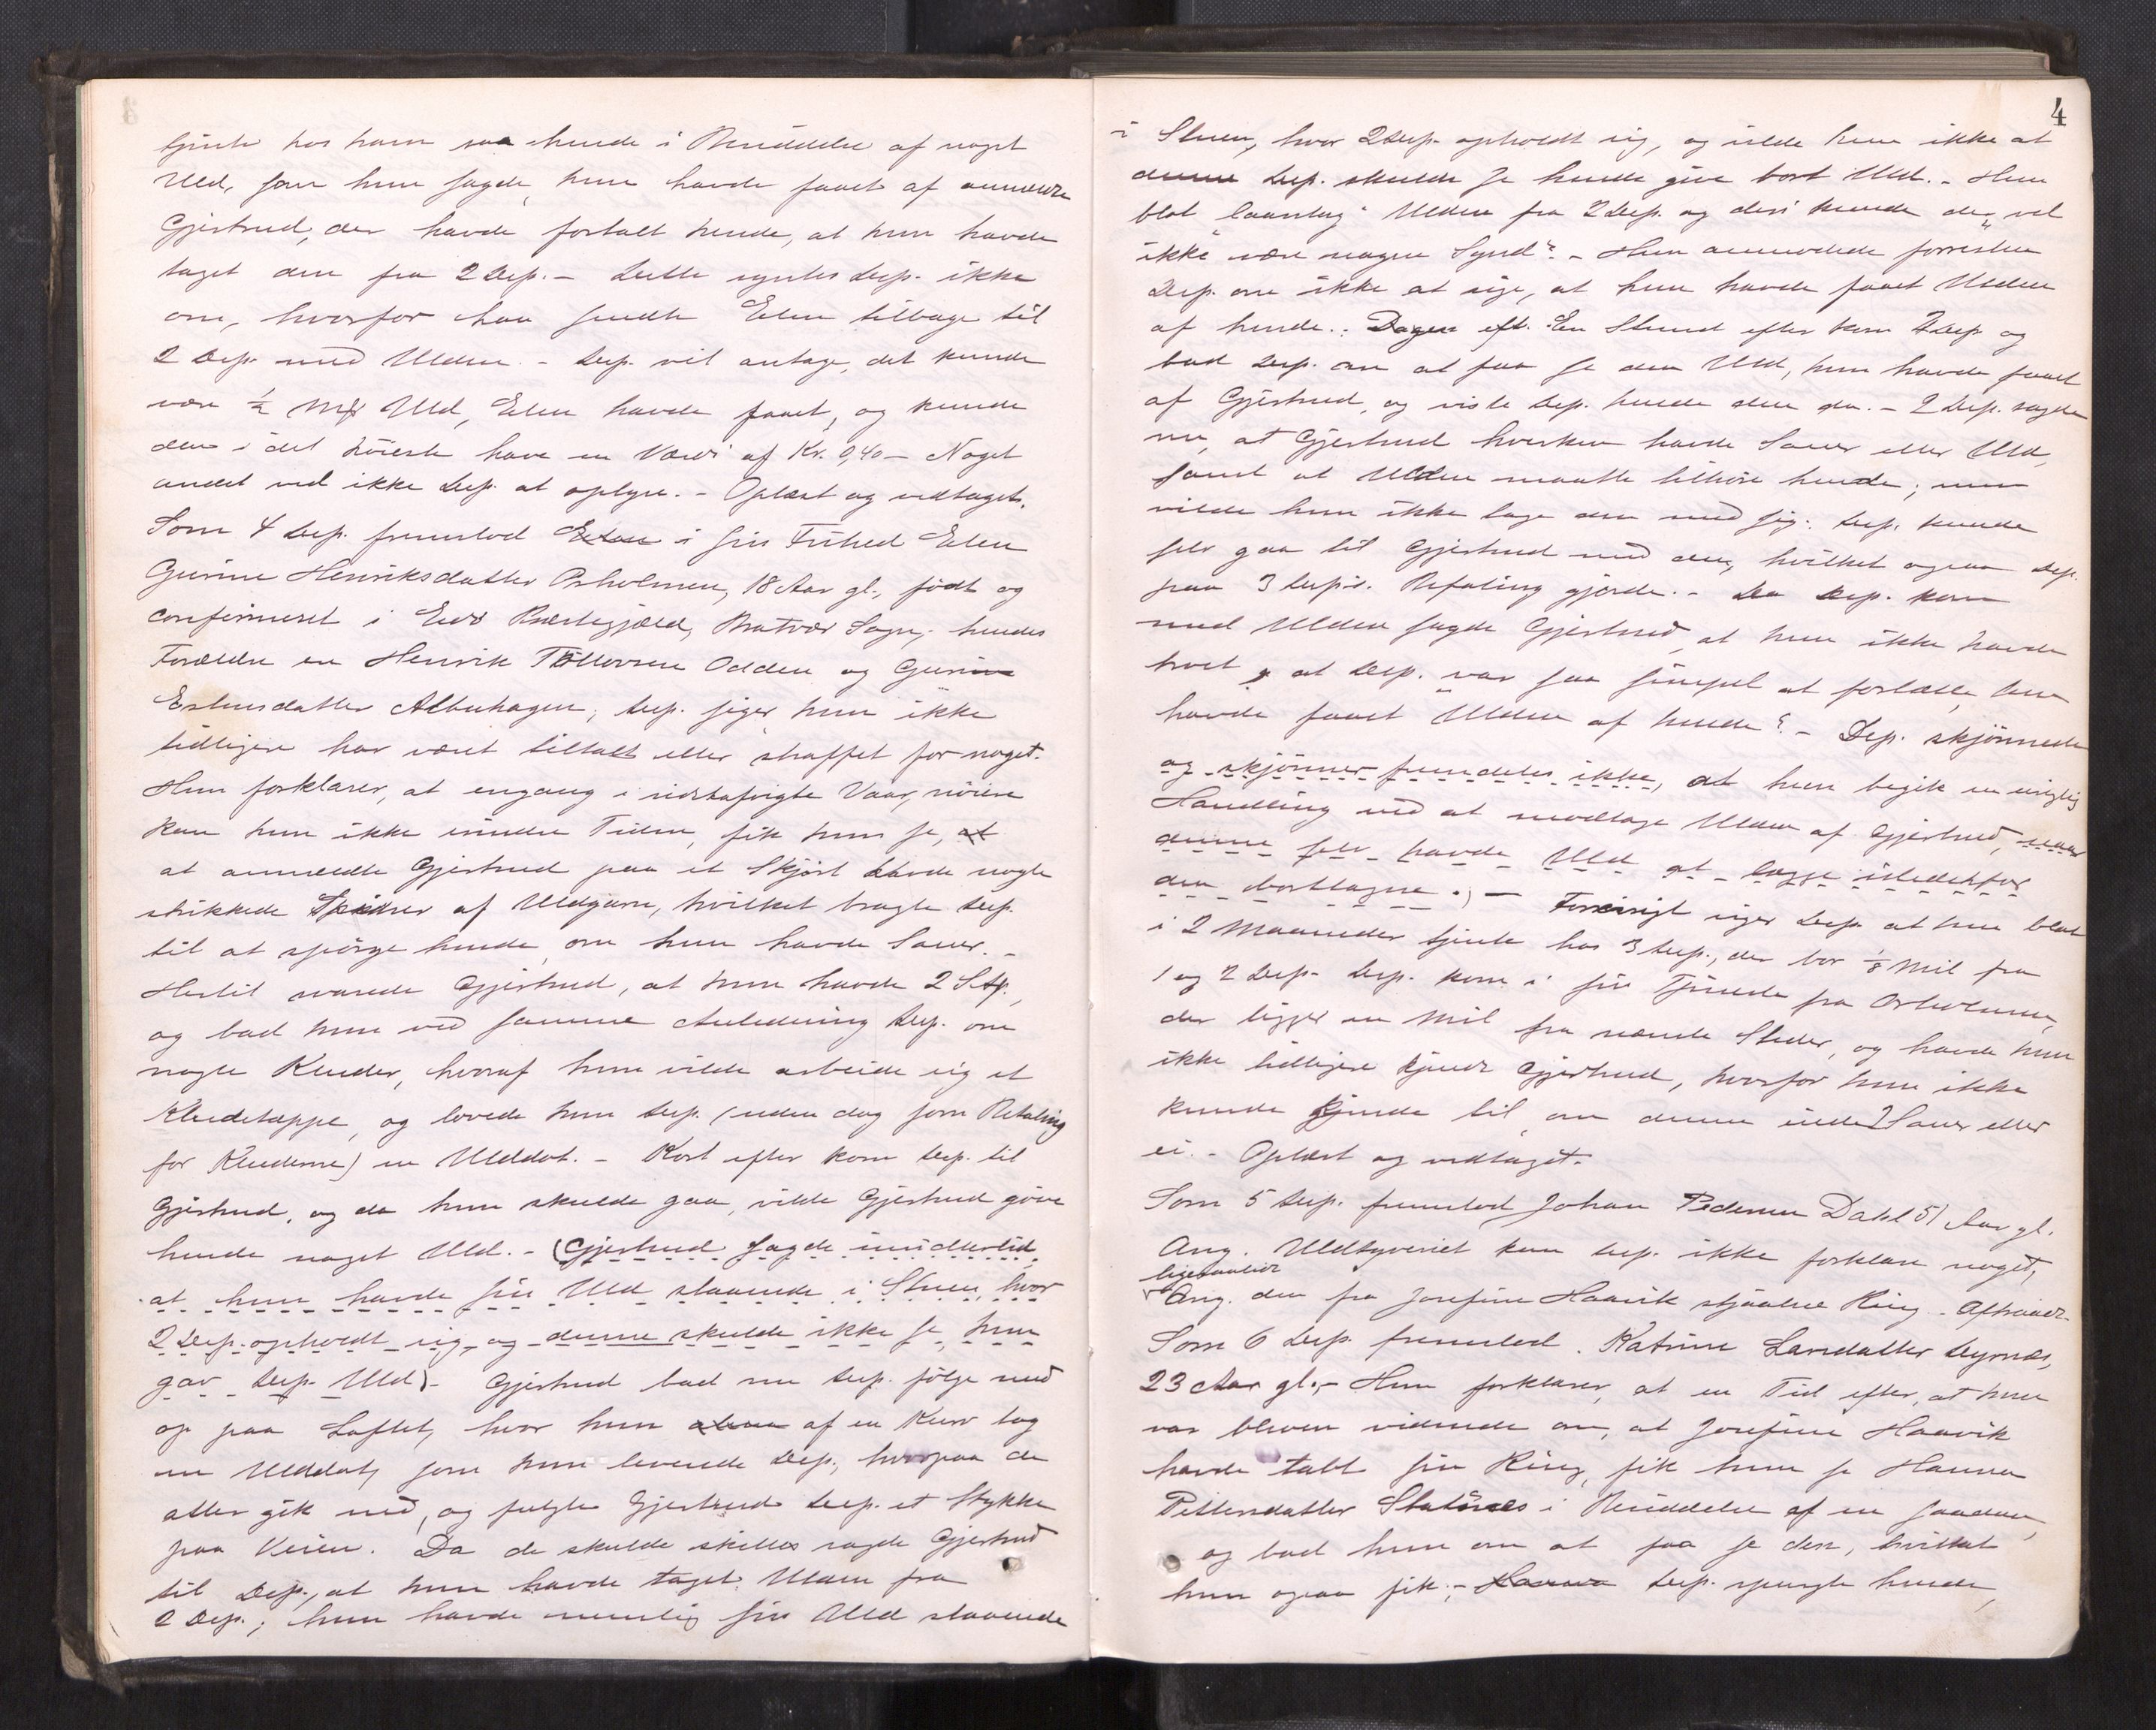 tjente hos ham saa hende i Besiddelse af noget
Uld, som hun sagde, hun havde faaet af anmeldte
Gjertrud, der havde fortalt hende, at hun havde
taget den fra 2 Dep. - Dette syntes Dep. ikke
om, hvorfor han sendte Elen tilbage til
2 Dep. med Ulden. - Dep. vil antage, det kunde
være ½ Mk Uld, Elen havde faaet, og kunde
den i det høieste have en Værdi af Kr. 0,40 - Noget
andet ved ikke Dep. at oplyse. - Oplæst og vedtaget.
Som 4 Dep. fremstod i sin Frihed Elen
Gurine Henriksdatter Orholmen, 18 Aar gl., født og
confirmeret i Edø Præstegjæld, Bratvær Sogn; hendes
Forældre er Henrik Tollevsen Odden og Gurine
Estensdatter Albuhagen; Dep. siger hun ikke
tidligere har været tiltalt eller straffet for noget.
Hun forklarer, at engang i sidstafvigte Vaar, nøiere
kan hun ikke erindre Tiden, fik hun se, at
at anmeldte Gjertrud paa et Skjørt havde nogle
strikkede af Uldgarn, hvilket bragte Dep.
til at spørge hende, om hun havde Sauer. -
Hertil svarede Gjertrud, at hun havde 2 Stk.,
og bad hun ved samme Anledning Dep. om
nogle Kluder, hvoraf hun vilde arbeide sig et
Kludetæppe, og lovede hun Dep. (uden dog som Betaling
for Kluderne) en Ulddot. - Kort efter kom Dep. til
Gjertrud, og da hun skulde gaa, vilde Gjertrud give
hende noget Uld. - (Gjertrud sagde imidlertid,
at hun havde sin Uld staaende i Stuen, hvor
2 Dep. opholdt sig, og denne skulde ikke se, hun
gav Dep. Uld). Gjertrud bad nu Dep. følge med
op paa Loftet, hvor hun af en Kurv tog
en Ulddot, som hun leverede Dep., hvorpaa de
atter gik ned, og fulgte Gjertrud Dep. et Stykke
paa Veien. Da de skulde skilles sagde Gjertrud
til Dep., at hun havde taget Ulden fra
2 Dep.; hun havde nemlig sin Uld staaende
4
i Stuen, hvor 2 Dep. opholdt sig, og vilde hun ikke at
denne Dep. skulde se hende give bort Uld. - Hun
blot "laantog" Ulden fra 2 Dep. og deri kunde der vel
ikke "være nogen Synd". - Hun anmodede forresten
Dep. om ikke at sige, at hun havde faaet Ulden
af hende. Dagen eft. En Stund efter kom 2 Dep og
bad Dep. om at faa se den Uld, hun havde faaet
af Gjertrud, og viste Dep. hende den da. - 2 Dep. sagde
nu, at Gjertrud hverken havde Sauer eller Uld,
samt at Ulden maatte tilhøre hende; men
vilde hun ikke tage den med sig. Dep. kunde
selv gaa til Gjertrud med den, hvilket ogsaa Dep.
paa 3 Dep's. Befaling gjorde. - Da Dep. kom
med Ulden sagde Gjertrud, at hun ikke havde
troet, at Dep. "var saa simpel at fortælle, hun
havde faaet Ulden af hende". - Dep. skjønnede
og skjønner fremdeles ikke, at hun begik en urigtig
Handling ved at modtage Ulden af Gjertrud, naar
denne selv havde Uld at lægge istedetfor
den borttagne.) - Forøvrigt siger Dep. at hun blot
i 2 Maaneder tjente hos 3 Dep., der bor ⅛ Mil fra
1 og 2 Dep. Dep. kom i sin Tjeneste fra Orholmen,
der ligger en Mil fra nævnte Steder, og havde hun
ikke tidligere kjendt Gjertrud, hvorfor hun ikke
kunde kjende til, om denne eiede Sauer eller
ei. - Oplæst og vedtaget.
Som 5 Dep. fremstod Johan Pedersen Dahl 51 Aar gl.
Ang. Uldtyveriet kan Dep. ikke forklare noget,
ligesaalidt
Ang. den fra Josefine Haavik stjaalne Ring. - Aftraadt.
Som 6 Dep. fremstod. Katrine Larsdatter Dyrnes,
23 Aar gl. - Hun forklarer, at en Tid efter, at hun
var bleven vidende om, at Josefine Haavik
havde tabt sin Ring, fik hun se Hanna
Pettersdatter i Besiddelse af en saadan,
og bad hun om at faa se den, hvilket
hun ogsaa fik; - Hanna Dep. spurgte hende,